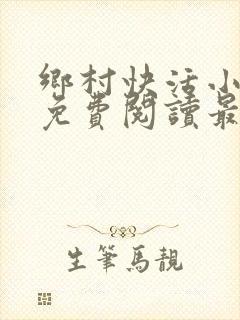 鄉村快活小
免費閱讀最
生筆馬靚